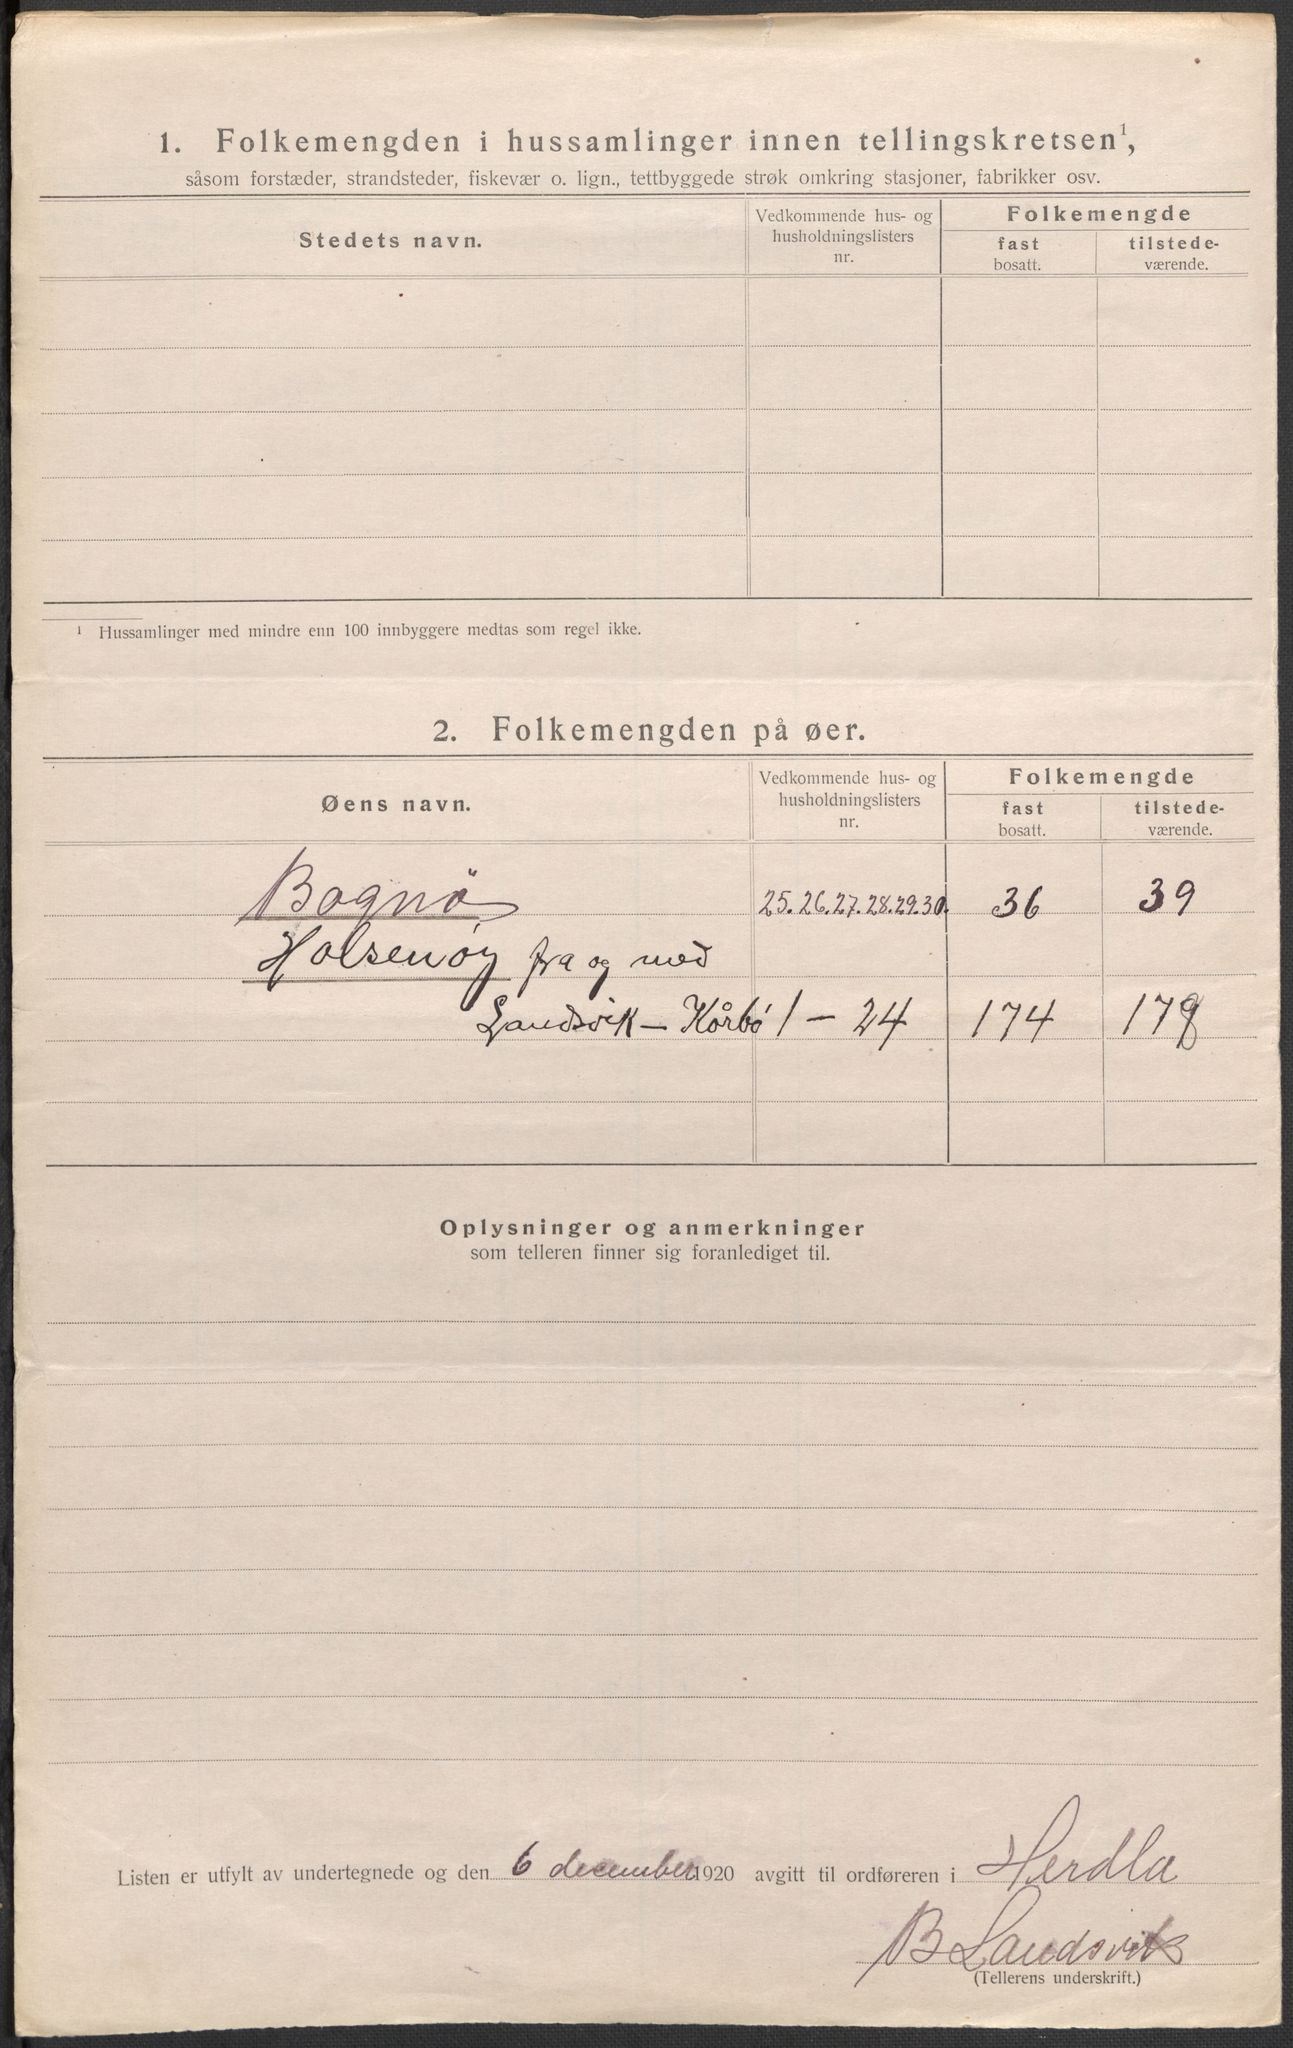 1. Folkemengden i hussamlinger innen tellingskretsen¹,
såsom forstæder, strandsteder, fiskevær o. lign., tettbyggede strøk omkring stasjoner, fabrikker osv.
Stedets navn. Vedkommende hus- og husholdningslisters nr. Folkemengde
fast bosatt. tilstede- værende.
¹ Hussamlinger med mindre enn 100 innbyggere medtas som regel ikke.
2. Folkemengden på øer.
Øens navn. Vedkommende hus- og husholdningslisters nr. Folkemengde
fast bosatt. tilstede- værende.
Bognö 25.26.27.28.29.30. 36 39
Holsenøy fra og med
Landsvik – Kårbø 1 – 24 174
Oplysninger og anmerkninger
som telleren finner sig foranlediget til.
Listen er utfylt av undertegnede og den 6 december 1920 avgitt til ordføreren i Herdla
B Landsvik
(Tellerens underskrift.)